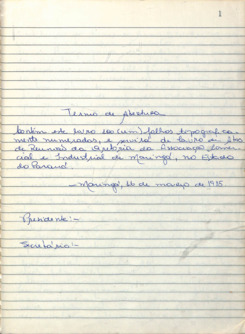 1
Termo de Abertura
Contém este livro 100 (cem) folhas tipografica-
mente numeradas, e servirá de livro de Atas
de Reunião da Diretoria da Associação Comer-
cial e Industrial de Maringá, no Estado
do Paraná.
- Maringá, 16 de março de 1975
Presidente:-
Secretário:-